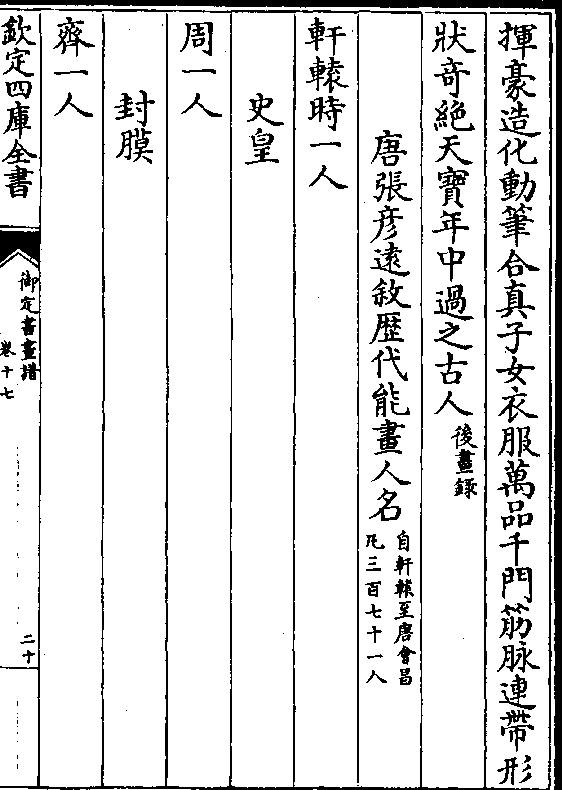 揮豪造化動筆合真子女衣服萬品千門筋脉連帶形
狀奇絶天寶年中過之古人後畫錄
唐張彥遠敘歷代能畫人名自軒轅至唐會昌
凡三百七十一人
軒轅時一人
史皇
周一人
封膜
齊一人
欽定四庫全書
御定書畫譜
卷十七
二十